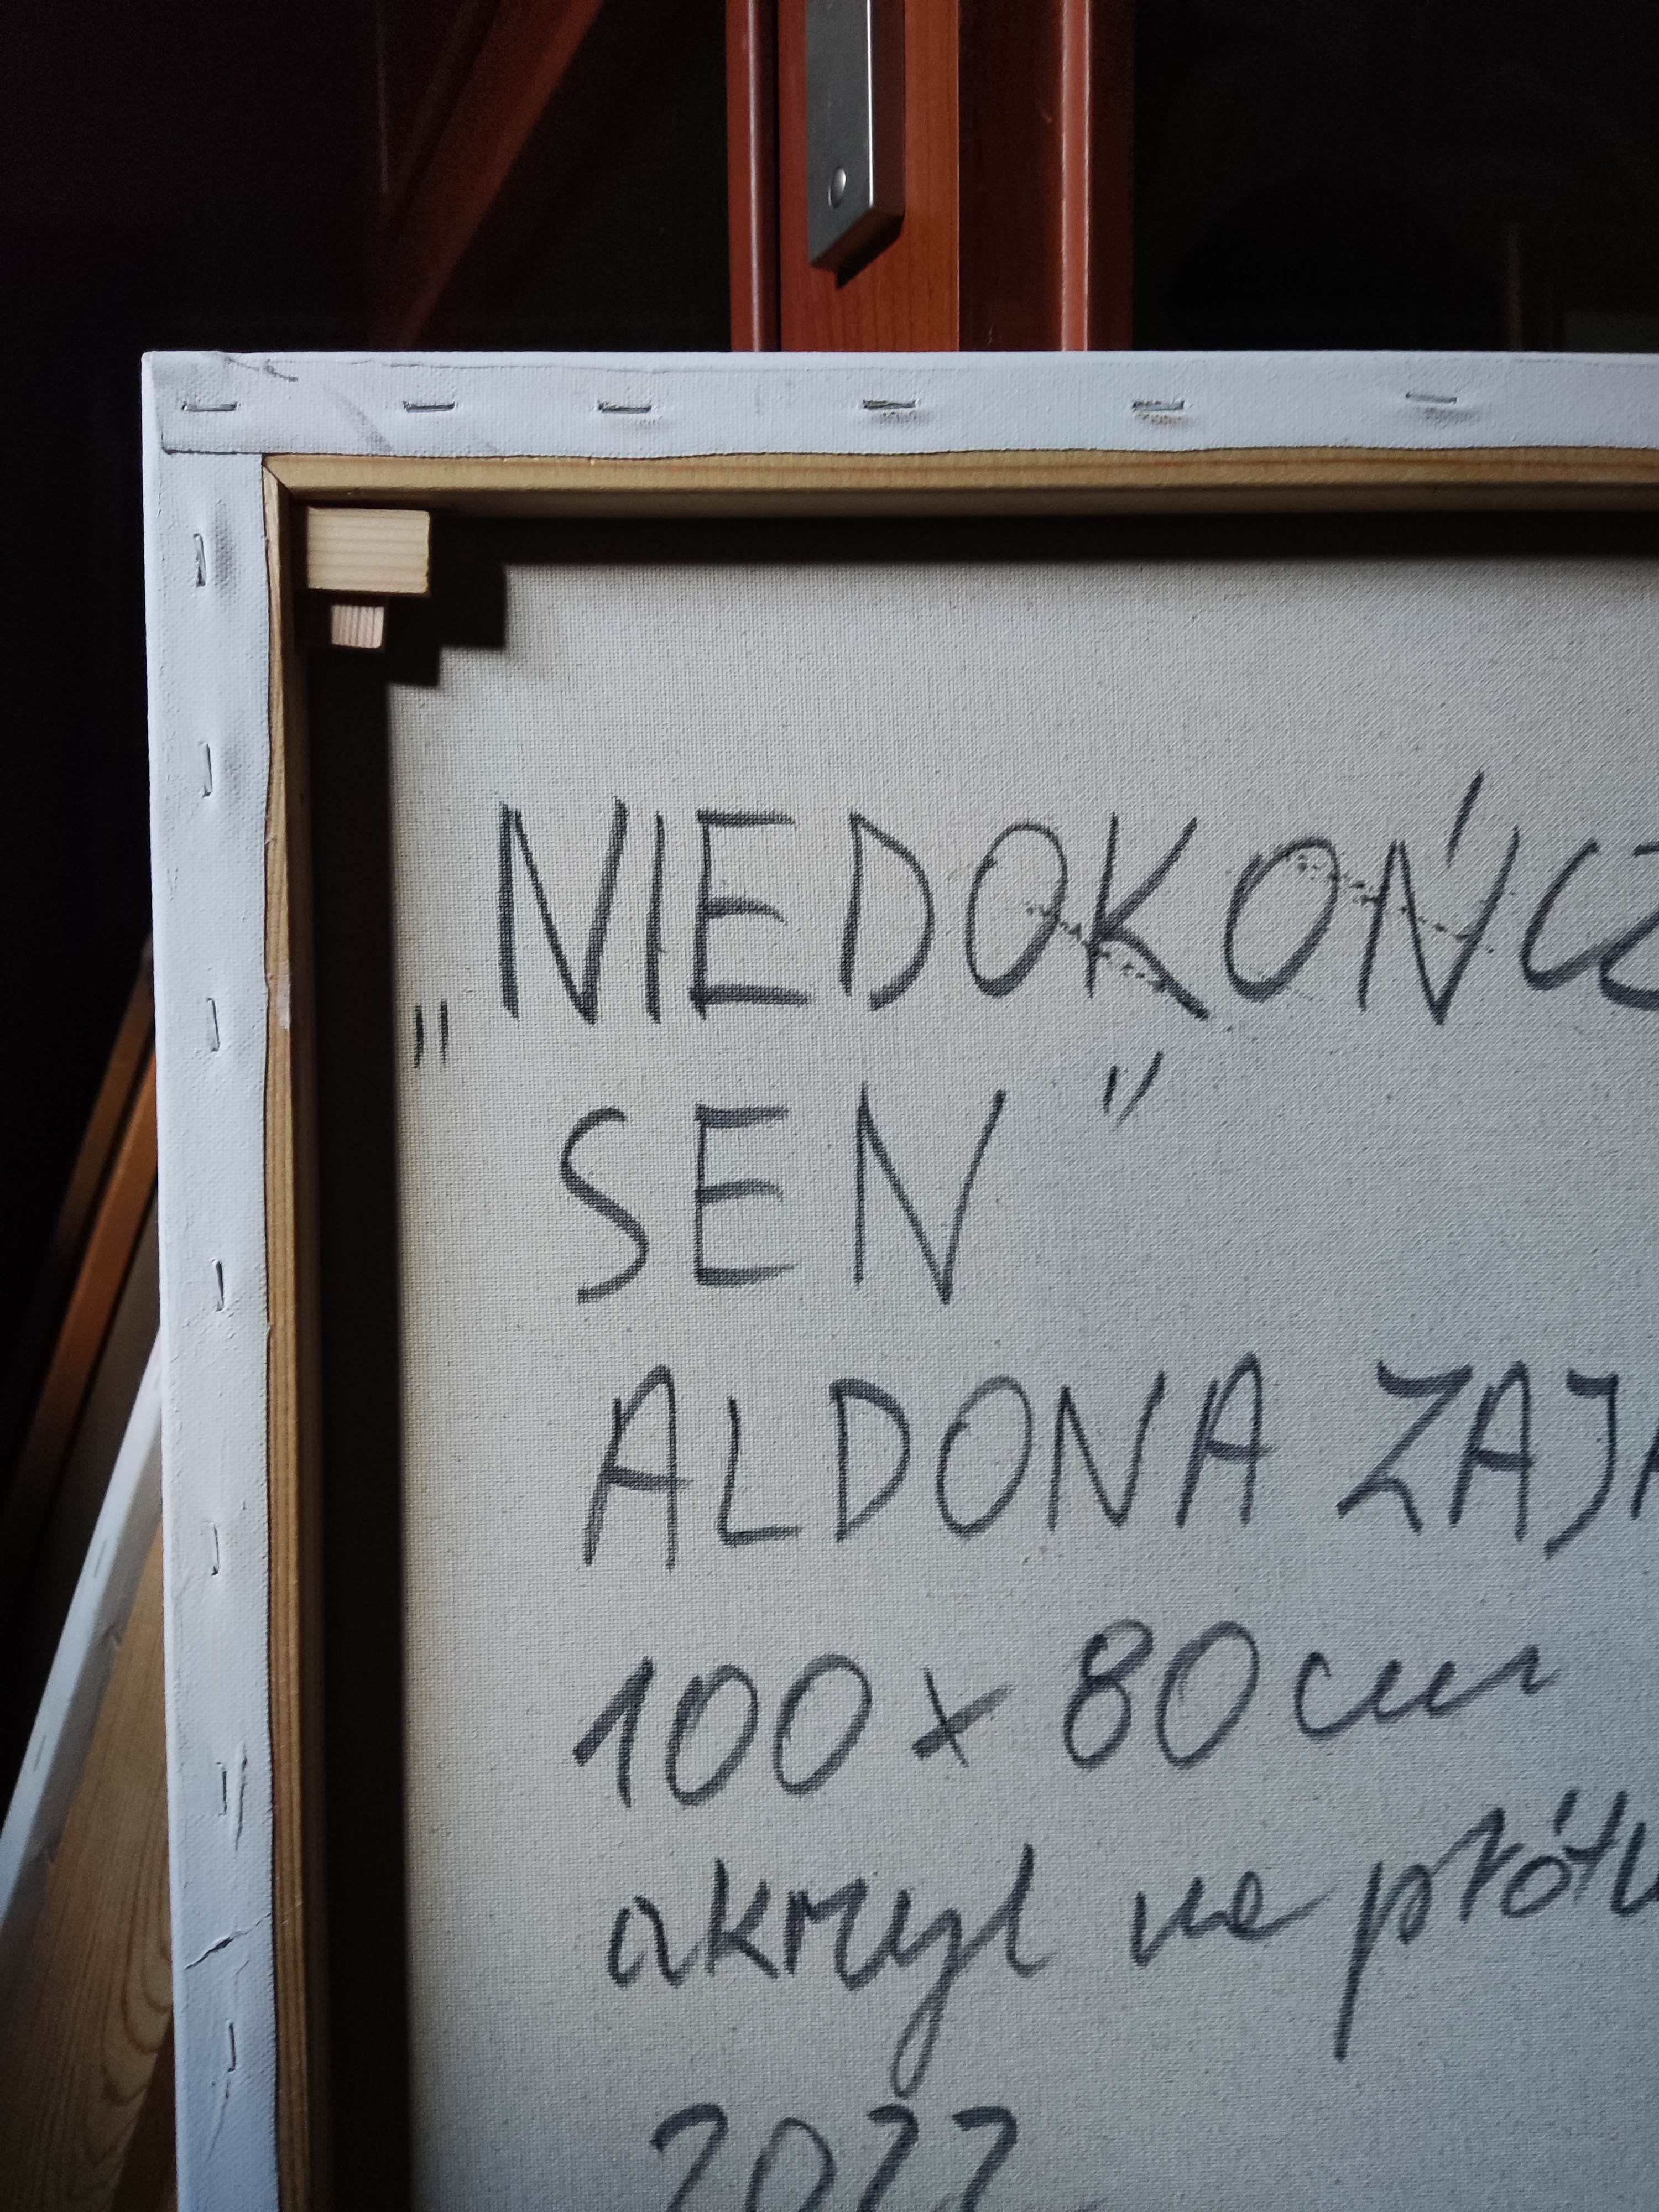 „NIEDOKOŃCZ
SEN"
ALDONA ZAJ
100 x 80 cm
akryl na płót
2022